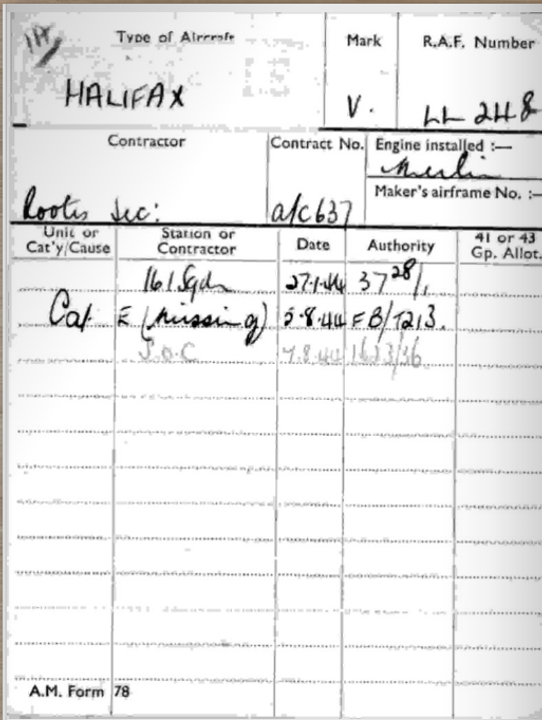 Type of Aircraft Mark R.A.F. Number
HALIFAX V. LL 248
Contractor Contract No. Engine installed :—
Merlin
Maker's airframe No. :—
Rootes Sec: a/c637
Unit or Cat'y/Cause Station or Contractor Date Authority 41 or 43 Gp. Allot.
161 Sqdn 27.1.44 3728/1
Cat E (missing) 5.8.44 FB/T213.
S.O.C 7.8.44 1623/36
A.M. Form 78